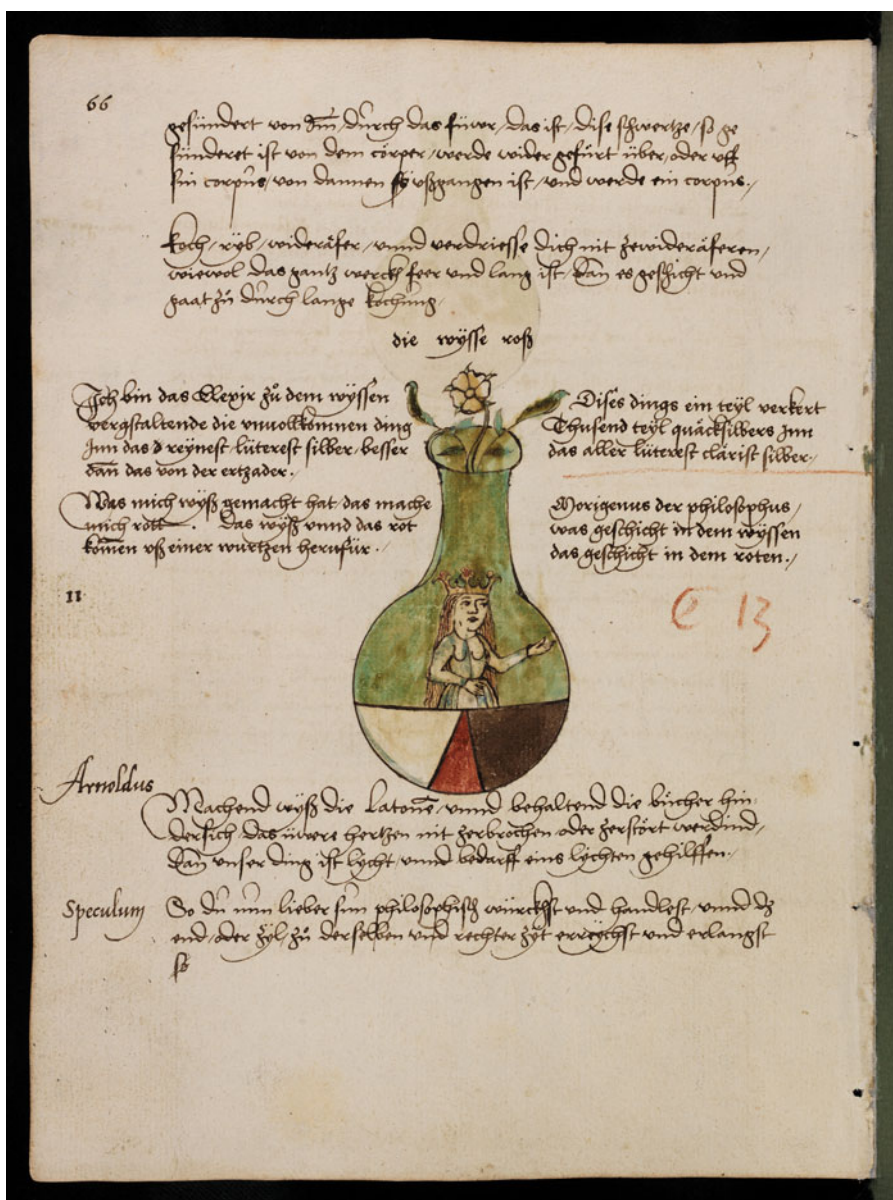 66
gesündert von Im̄, durch das füwr, das ist, dise schwertze, so ge
sünderet ist von dem cörper, werde wider gefürt über, oder vff
sin corpus, von dannen sy vßgangen ist, vnd werde ein corpus.
koch, ryb, wideräfer, vnnd verdriesse dich nit zewideräferen,
wiewol das gantz werck feer vnd lang ist, dan̄ es geschicht vnd
gaat zů durch lange kochung.
die wÿsse roß
Ich bin das Elexir zů dem wyssen
vergstaltende die vnuolkomnen ding
Inn das d reynest, lüterest silber, besser
dan̄ das von der ertzader.
Was mich wyß gemacht hat, das mache
mich rott. das wyß vnnd das rot
kom̄en vß einer wurtzen herufür.
Dises dings ein teÿl verkert
Thusend teÿl quäcksilbers Inn
das aller lüterest clärist silber.
Morigenus der philosophus,
was geschicht in dem wÿssen
das geschicht in dem roten.
II
C 13
Arnoldus
Machend wyß die Latonē, vnnd behaltend die bücher hin
dersich, das üwere hertzen nit zerbrochen, oder zerstört werdind,
dan̄ vnser ding ist lycht, vnnd bedarff eins lychten gehilffen.
Speculum
So du nun lieber sun philosophisch würckst vnd handlest, vnnd dz
end, oder zyl, zů derselben vnd rechter zÿt erreÿchst vnd erlangst
so